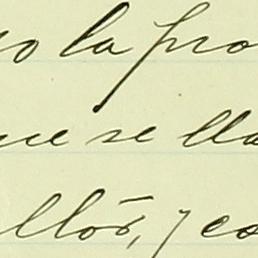 yo la pro
ue se lla
llós, y co